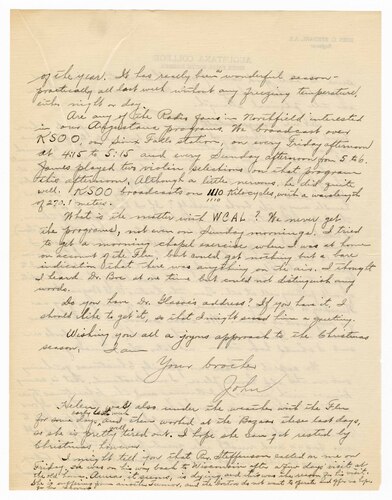 of the year. It has really been wonderful season -
practically all last week without any freezing temperature,
either night or day.
Are any of the Radio fans in Northfield interested
in our Augustana programs. We broadcast over
KSOO, our Sioux Falls station, on every Friday afternoon
at 4:45 to 5:15 and every Sunday afternoon from 5 to 6.
James played two selections on that program
this afternoon, Although a little nervous, he did quite
well. KSOO broadcasts on 1110 Kilocycles, with a wavelength
1110
of 270.1 meters.
What is the matter with WCAL? We never get
the programs, not even on Sunday mornings. I tried
to get a morning chapel exercise when I was at home
on account of the Flu, but could get nothing but a bare
indication that there was anything on the air. I thought
I heard Dr. Boe at one time but could not distinguish any
words.
Do you have Dr. address? If you have it, I
should like to get it, so that I might send him a greeting.
Wishing you all a joyous approach to the Christmas
season, I am
Your brother
John
Helen, was also under the weather with the Flu
early last week
for some days, and then worked at the these last days,
so she is pretty well tired out. I hope she can get rested by
Christmas time.
I might tell you that Rev. Steffenson called on me on
Friday; he was on his way back to Wisconsin after a four days' visit at
the old home. it seems, is dying, and
She is suffering from and the doctors do not want to operate and give no hope
for her